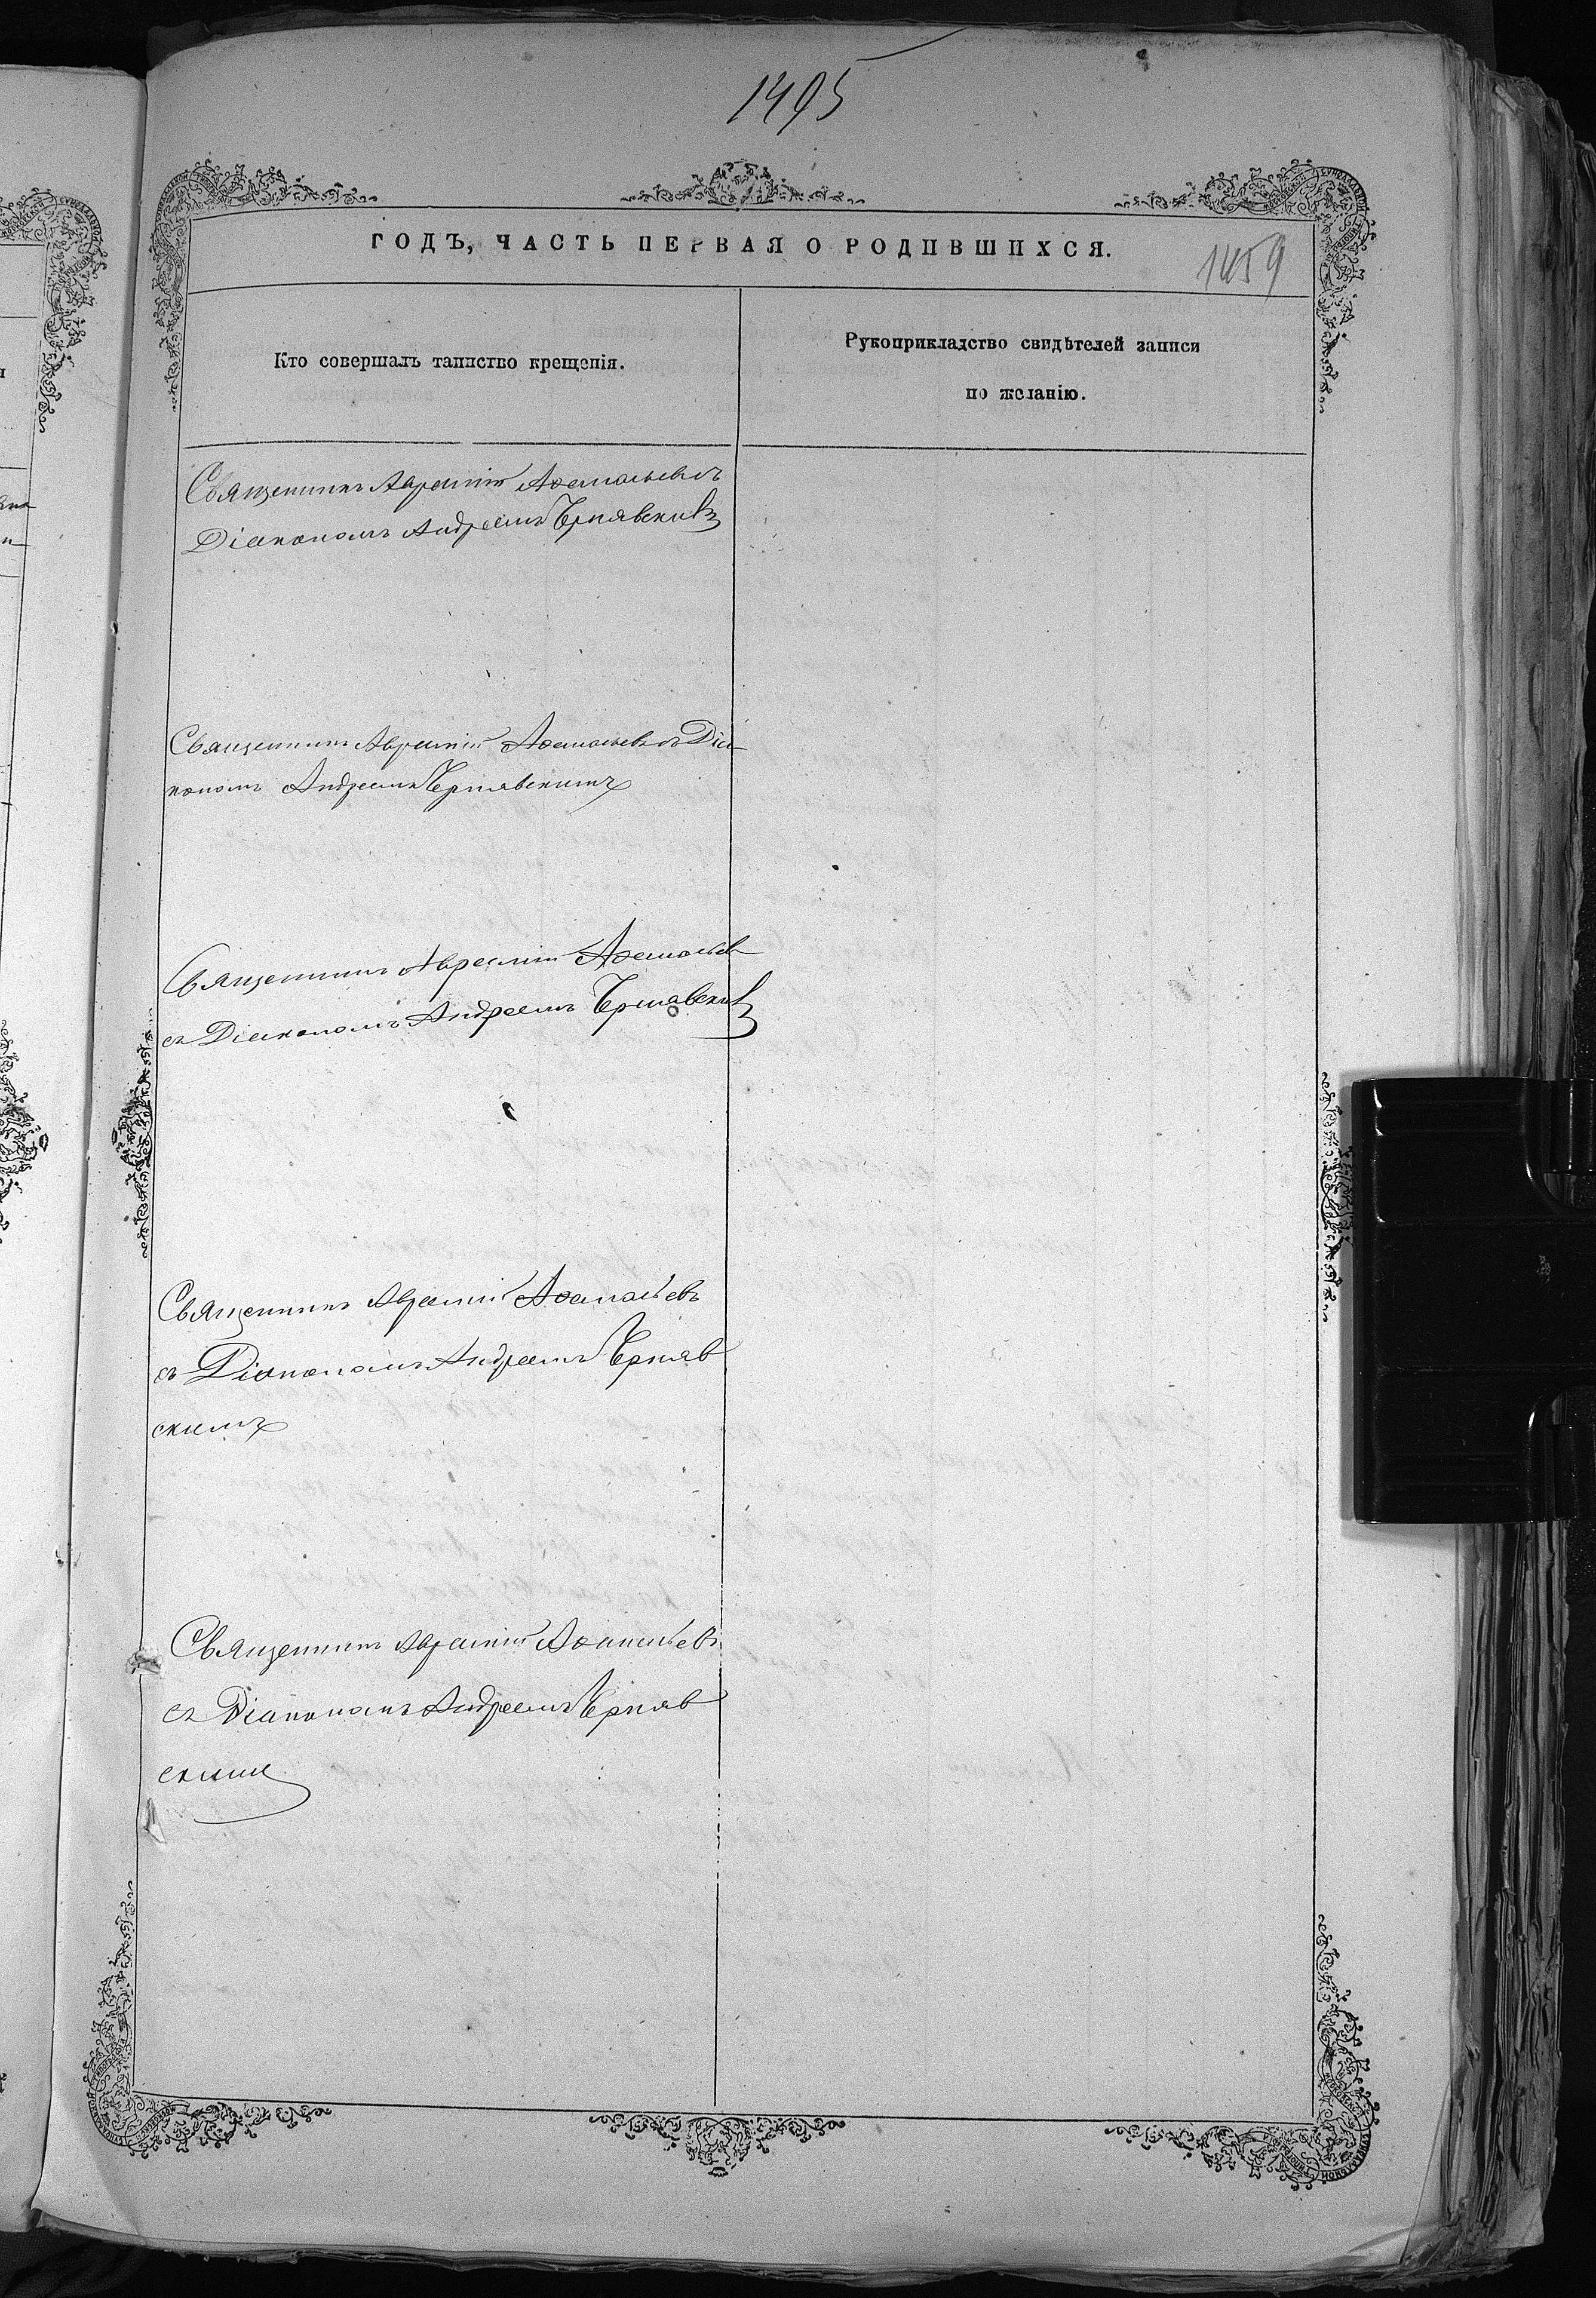 1495
ГОДЪ, ЧАСТЬ ПЕРВАЯ О РОДИВШИХСЯ.
1459
Кто совершалъ таинство крещенія.
Рукоприкладство свидѣтелей записи
по желанію.
Священникъ Авраамій Аѳанасьевъ съ
Діакономъ Андреемъ Чернявскимъ
Священникъ Авраамій Аѳанасьевъ съ Діа-
кономъ Андреемъ Чернявскимъ
Священникъ Авраамій Аѳанасьев
съ Діакономъ Андреемъ Чернявским
Священникъ Авраамій Аѳанасьевъ
съ Діакономъ Андреемъ Черняв
скимъ
Священникъ Авраамій Аѳанасьевъ
съ Діакономъ Андреемъ Черняв
скимъ